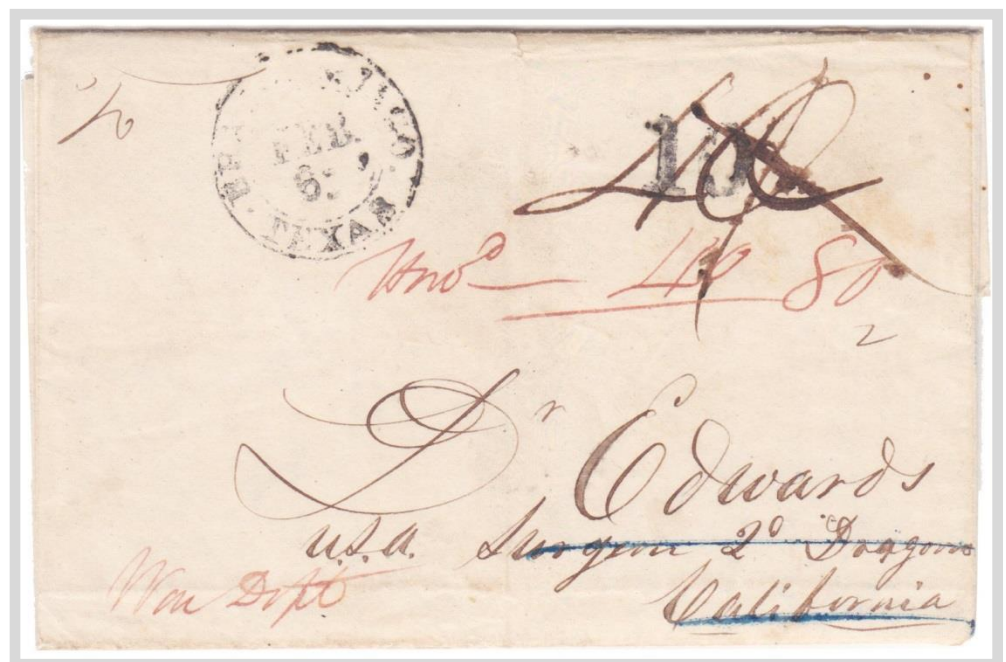 FEB
6
TEXAS
10
40 80
2
Dr Edwards
U.S.A. Surgeon 2d Dragoons
California
War Dept